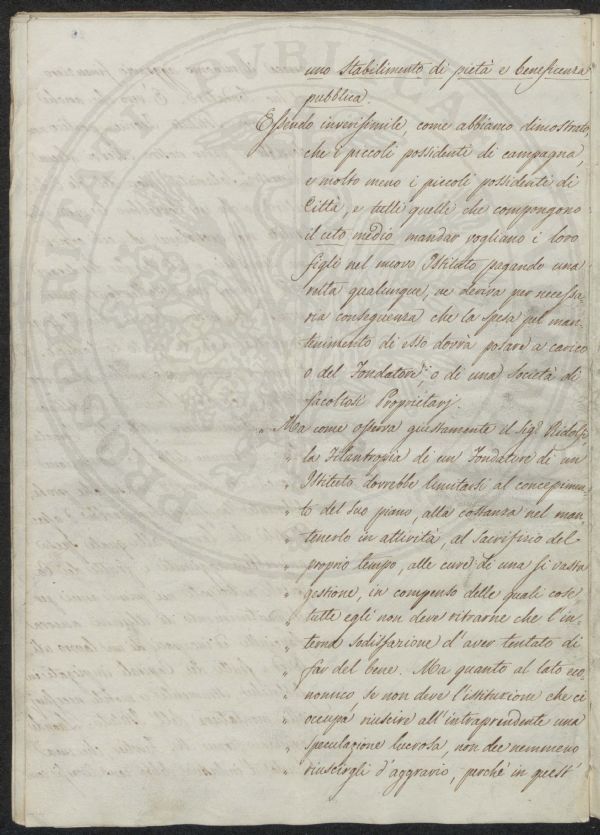 uno stabilimento di pietà e beneficenza
pubblica.
Essendo inverisimile, come abbiamo dimostrato,
che i piccoli possidenti di campagna,
e molto meno i piccoli possidenti di
Città, e tutti quelli che compongono
il ceto medio mandar vogliano i loro
figli nel nuovo Istituto pagando una
retta qualunque, ne deriva per necessa-
ria conseguenza che la spesa pel man-
tenimento di esso dovrà posare a carico
o del Fondatore o di una Società di
facoltosi Proprietarj.
„ Ma come osserva giustamente il Sig.r Ridolfi,
„ la Filantropia di un Fondatore di un
„ Istituto dovrebbe limitarsi al concepimen-
„ to del suo piano, alla costanza nel man-
„ tenerlo in attività, al sacrifizio del
„ proprio tempo, alle cure di una sì vasta
„ gestione, in compenso delle quali cose
„ tutte egli non deve ritrarne che l'in-
„ terna sodisfazione d'aver tentato di
„ far del bene. Ma quanto al lato eco-
„ nomico, se non deve l'istituzione che ci
„ occupa riuscire all'intraprendente una
„ speculazione lucrosa, non dee nemmeno
„ riuscirgli d'aggravio, perchè in quest'
PROSPERITATI PVBLICAE